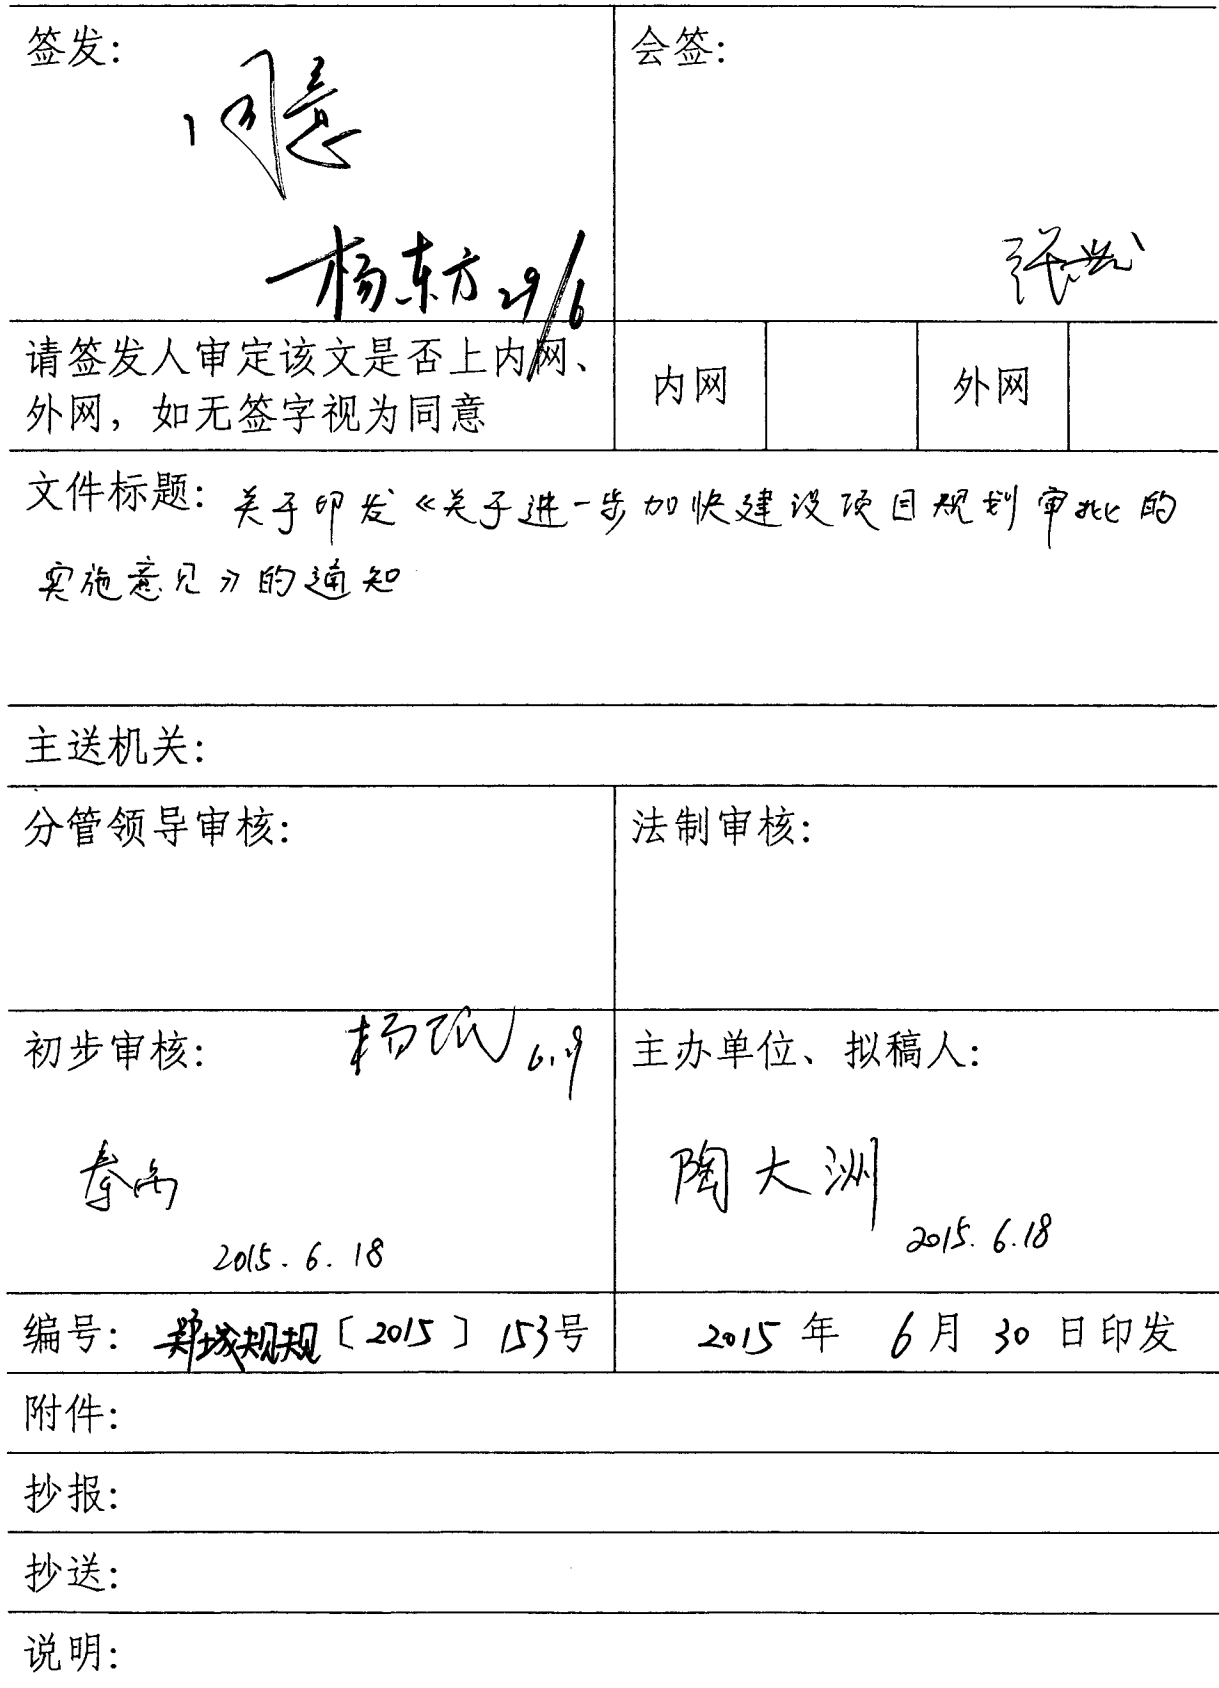 签发:
会签:
同意
杨东方 29/6
请签发人审定该文是否上内网、
外网，如无签字视为同意
内网
外网
文件标题: 关于印发《关于进一步加快建设项目规划审批的
实施意见》的通知
主送机关:
分管领导审核:
法制审核:
初步审核: 6.29
主办单位、拟稿人:
陶大洲
2015.6.18
2015.6.18
编号: 郑城规规〔2015〕153号
2015年 6月 30日印发
附件:
抄报:
抄送:
说明: